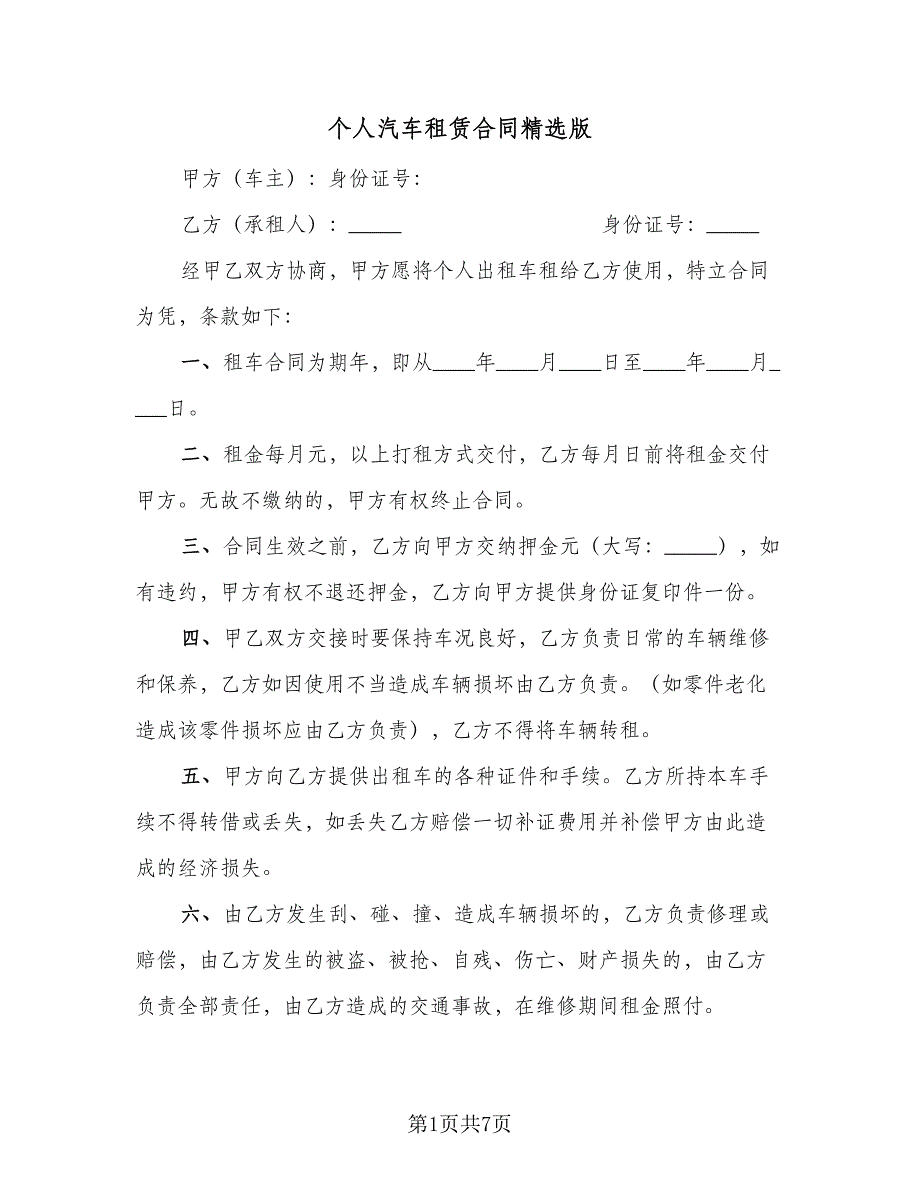 个人汽车租赁合同精选版
甲方（车主）：身份证号：
乙方（承租人）：_____ 身份证号：_____
经甲乙双方协商，甲方愿将个人出租车租给乙方使用，特立合同
为凭，条款如下：
一、租车合同为期年，即从____年____月____日至____年____月_
___日。
二、租金每月元，以上打租方式交付，乙方每月日前将租金交付
甲方。无故不缴纳的，甲方有权终止合同。
三、合同生效之前，乙方向甲方交纳押金元（大写：_____），如
有违约，甲方有权不退还押金，乙方向甲方提供身份证复印件一份。
四、甲乙双方交接时要保持车况良好，乙方负责日常的车辆维修
和保养，乙方如因使用不当造成车辆损坏由乙方负责。（如零件老化
造成该零件损坏应由乙方负责），乙方不得将车辆转租。
五、甲方向乙方提供出租车的各种证件和手续。乙方所持本车手
续不得转借或丢失，如丢失乙方赔偿一切补证费用并补偿甲方由此造
成的经济损失。
六、由乙方发生刮、碰、撞、造成车辆损坏的，乙方负责修理或
赔偿，由乙方发生的被盗、被抢、自残、伤亡、财产损失的，由乙方
负责全部责任，由乙方造成的交通事故，在维修期间租金照付。
第1页共7页